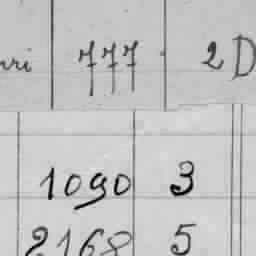 777 2 D
1090 3
2168 5